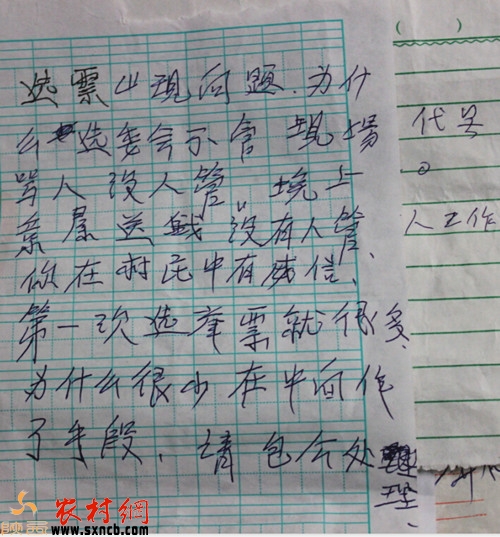 选票出现问题.为什
么选委会不管 现场
骂人没人管。晚上
亲属送钱没有人管、
你在村民中有威信、
第一次选举票就很多、
为什么很少在中间作
了手段、请包公处理
理、
(  )
代号
。
人工作
农村網
www.sxncb.com